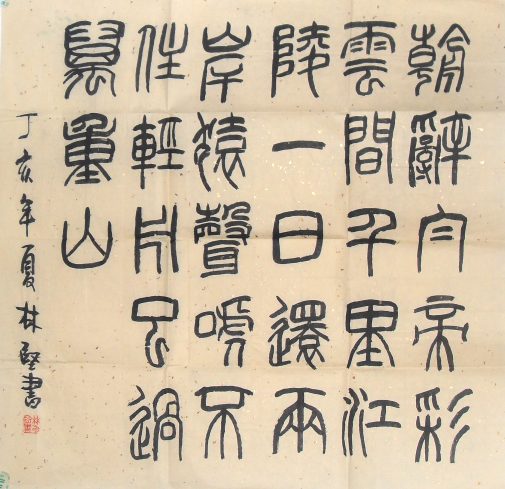 朝辭白帝彩
雲間千里江
陵一日還兩
岸猿聲啼不
住輕舟已過
萬重山
丁亥年夏林堅書